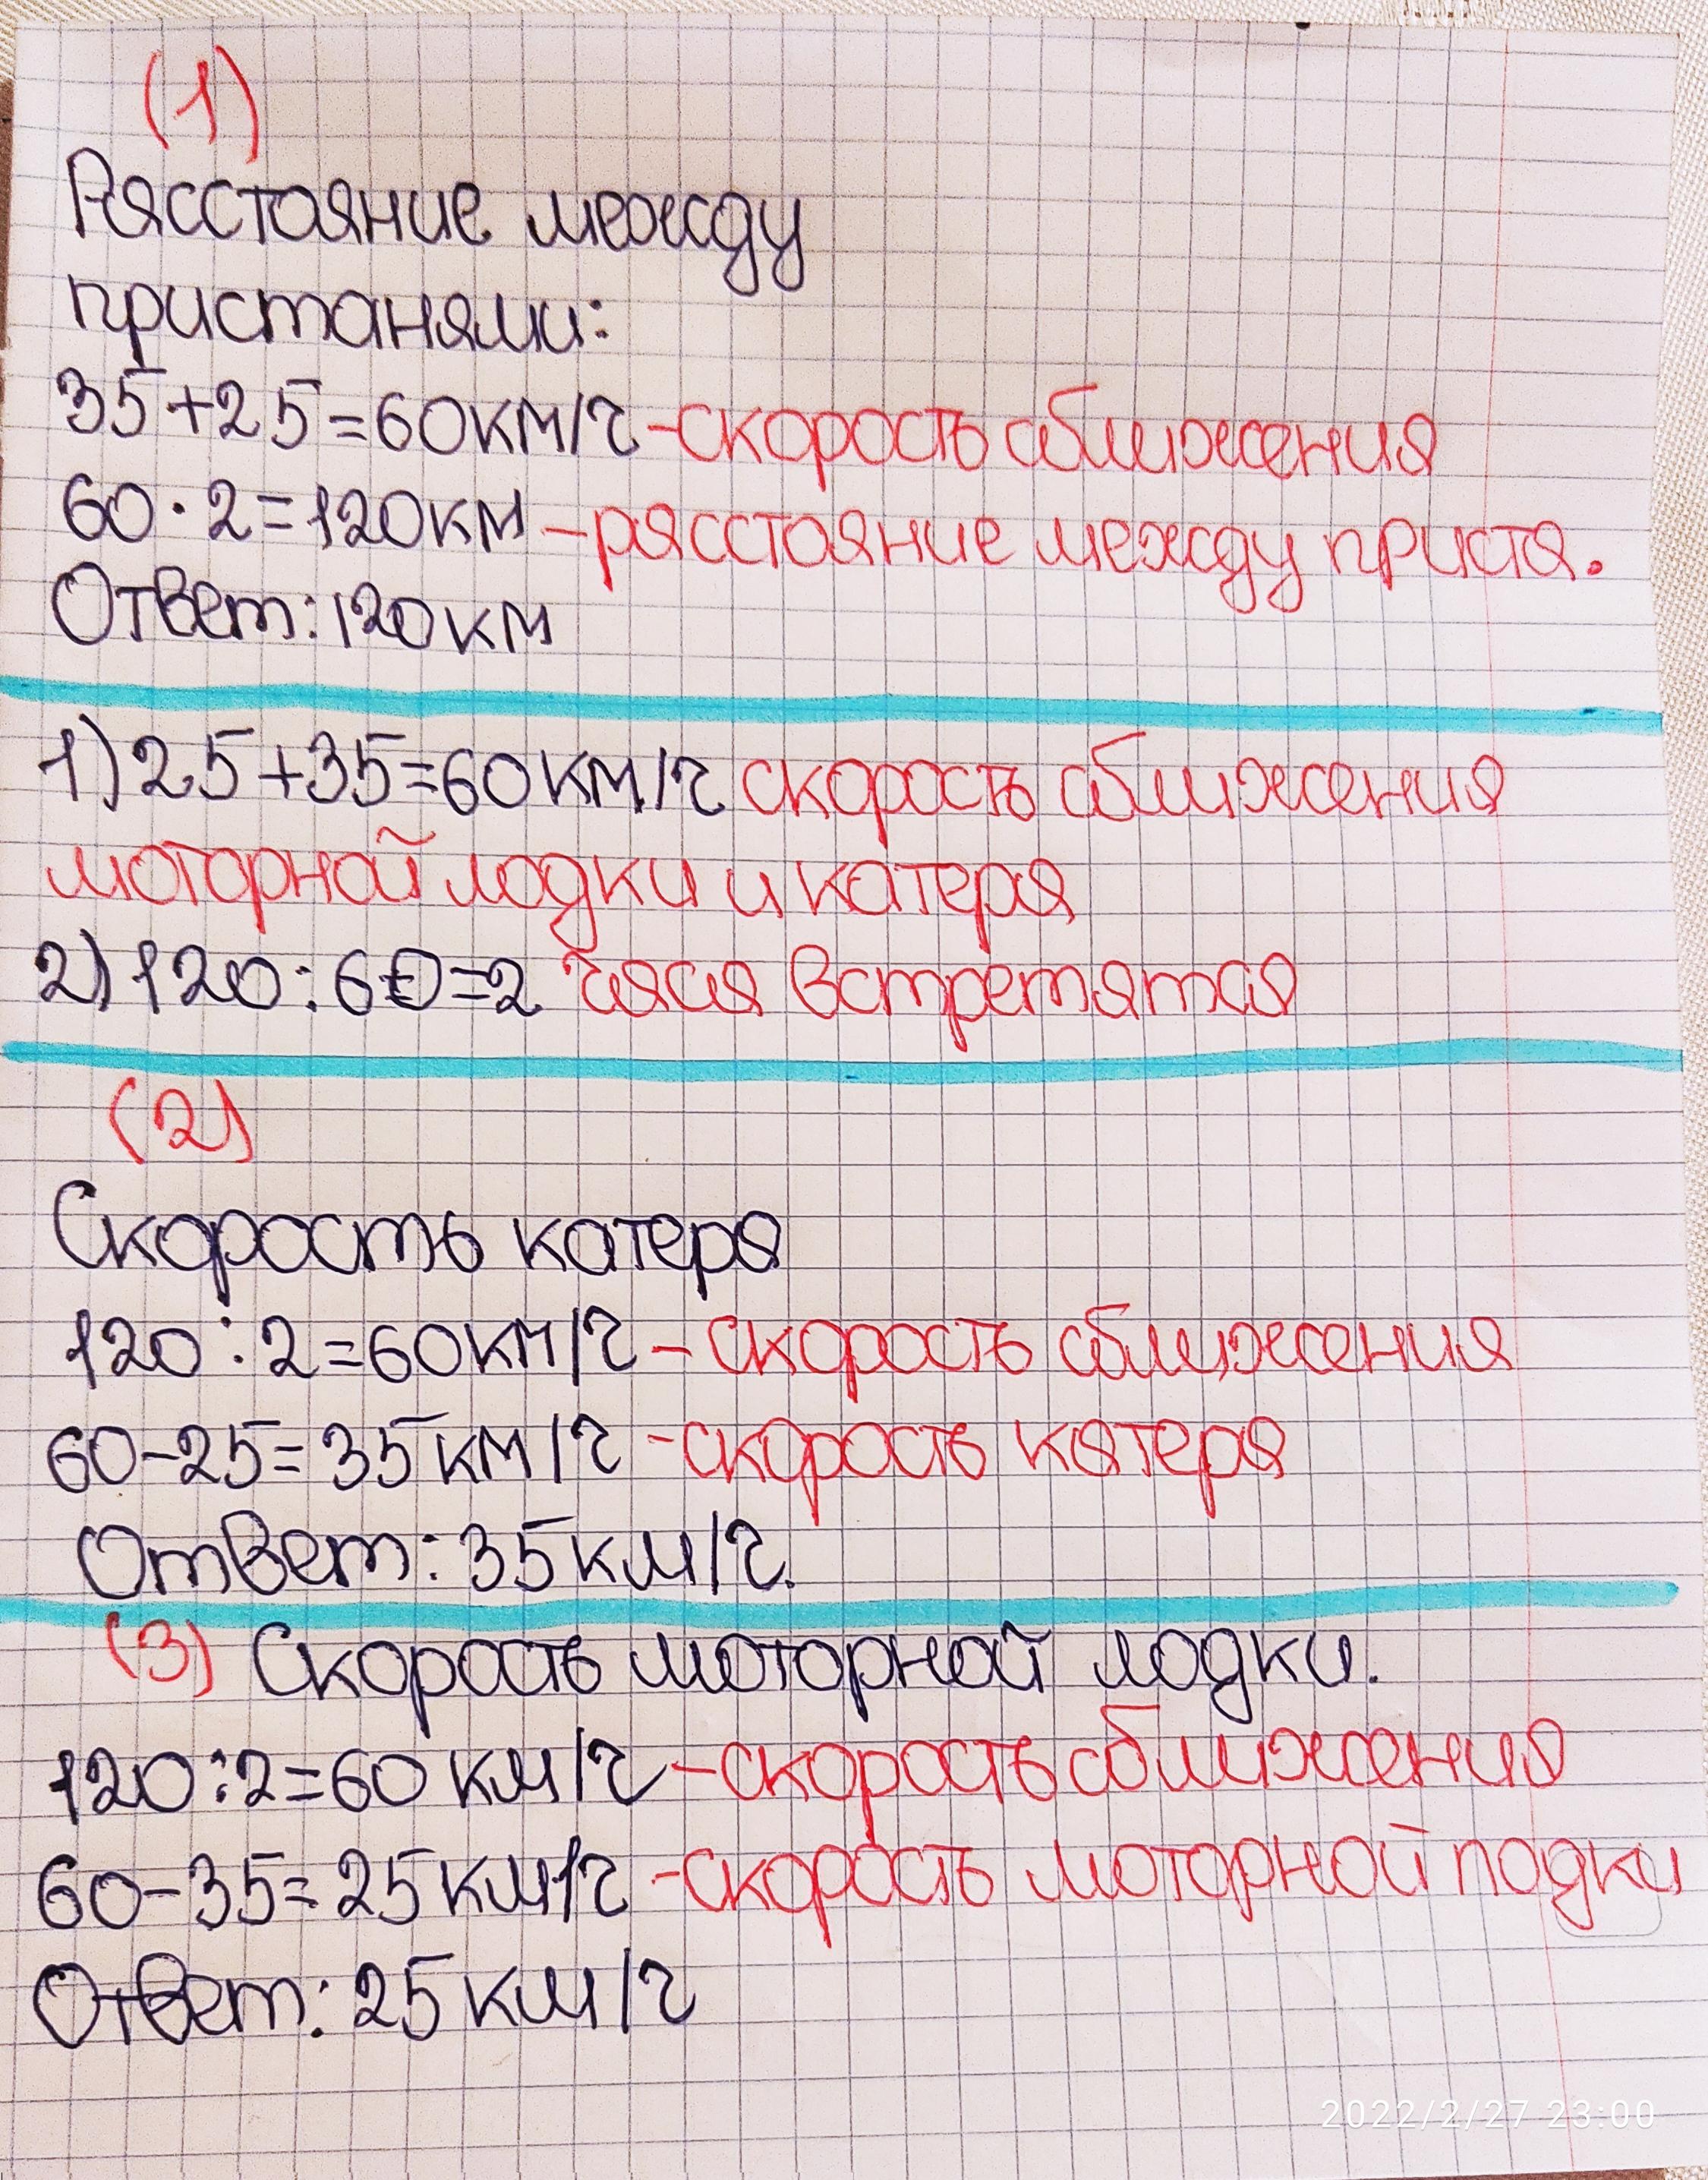 (1)
Расстояние между
пристанями:
35+25=60км/ч -скорость сближения
60·2=120км -расстояние между приста.
Ответ: 120км
1) 25+35=60км/ч скорость сближения
моторной лодки и катера
2) 120:60=2 часа встретятся
(2)
Скорость катера
120:2=60км/ч - скорость сближения
60-25=35км/ч -скорость катера
Ответ: 35км/ч.
(3) Скорость моторной лодки.
120:2=60 км/ч -скорость сближения
60-35=25км/ч -скорость моторной лодки
Ответ: 25км/ч
2022/2/27 23:00